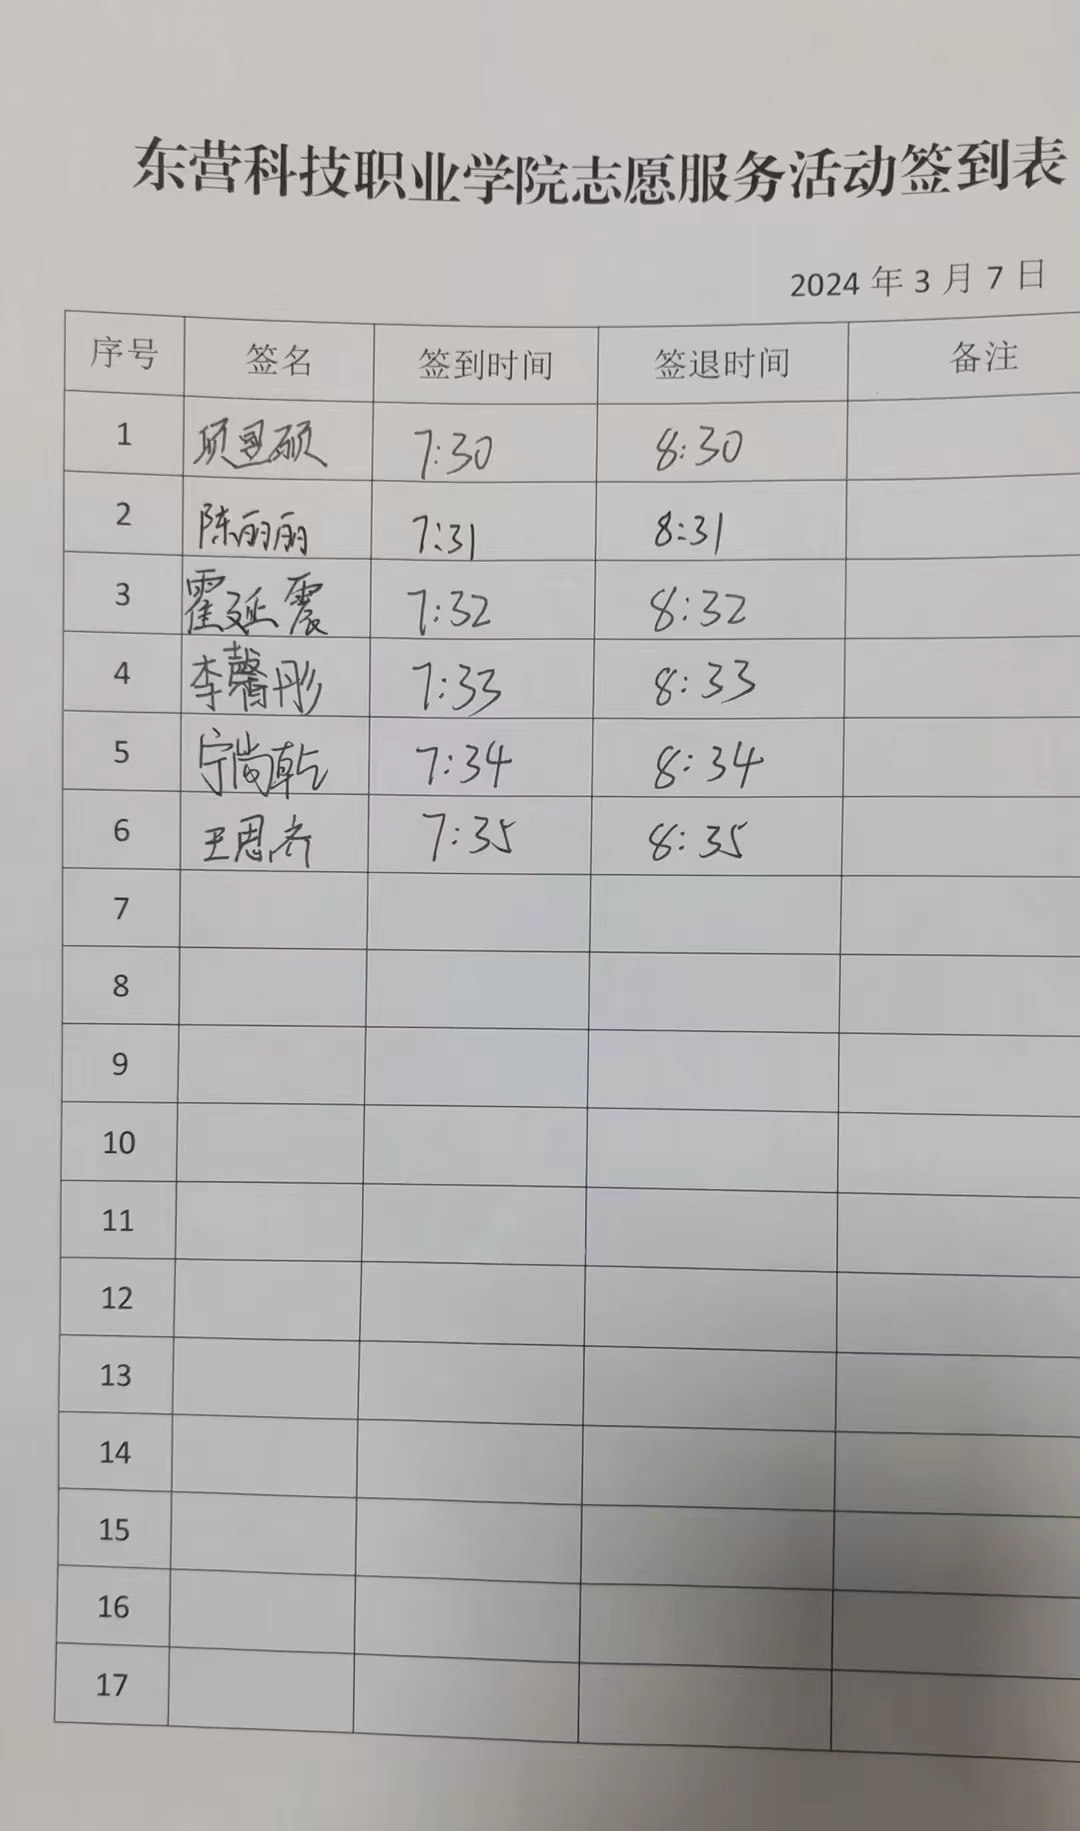 东营科技职业学院志愿服务活动签到表
2024 年 3 月 7 日
序号 签名 签到时间 签退时间 备注
1 硕 7:30 8:30
2 陈丽丽 7:31 8:31
3 霍延震 7:32 8:32
4 李馨彤 7:33 8:33
5 宁尚乾 7:34 8:34
6 王思齐 7:35 8:35
7
8
9
10
11
12
13
14
15
16
17